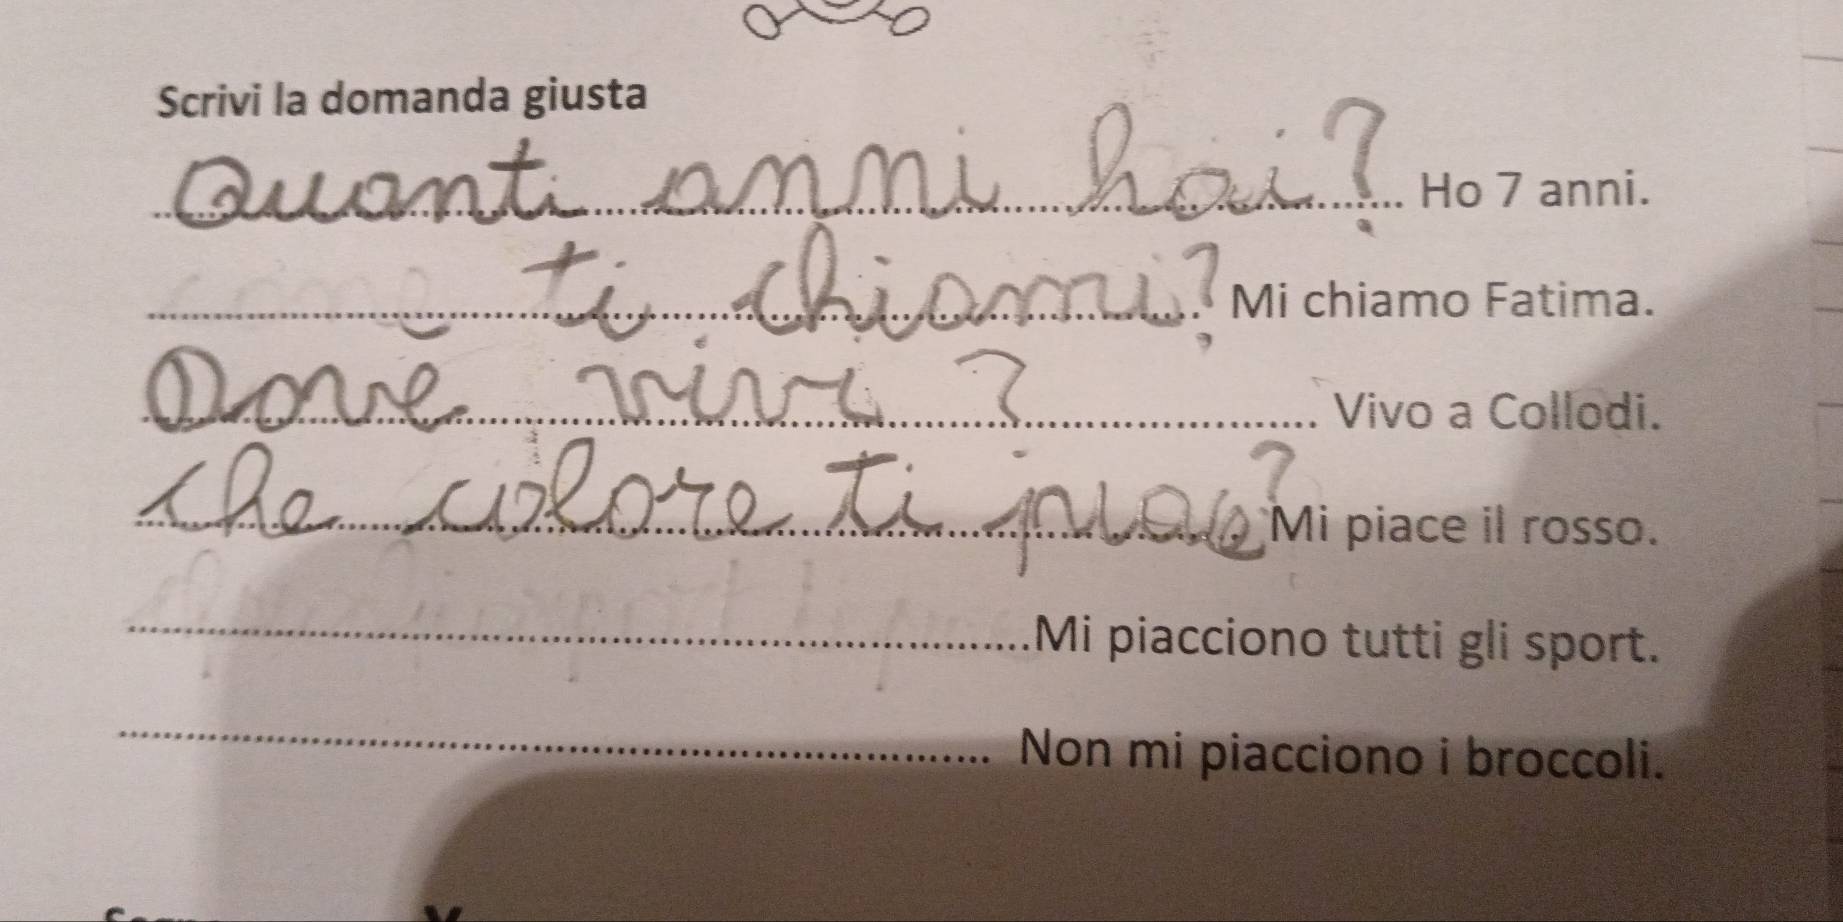 Scrivi la domanda giusta
Quanti anni hai? Ho 7 anni.
come ti chiami? Mi chiamo Fatima.
Dove vivi? Vivo a Collodi.
che colore ti piace? Mi piace il rosso.
Mi piacciono tutti gli sport.
Non mi piacciono i broccoli.